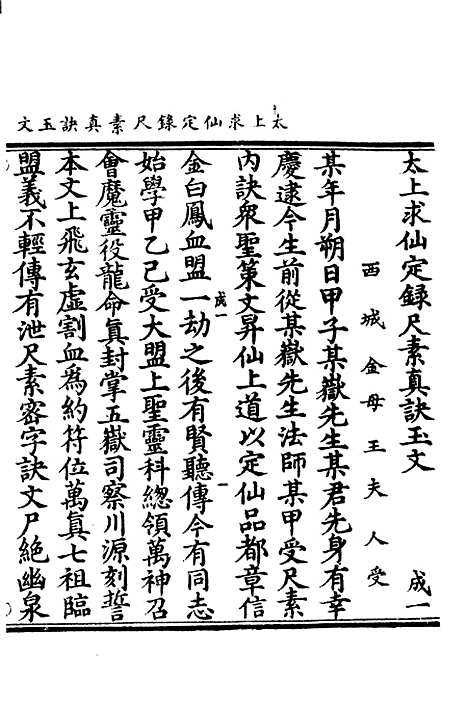 太上求仙定錄尺素真訣玉文
太上求仙定錄尺素真訣玉文　成一
西城金母王夫人受
某年月朔日甲子某嶽先生某君先身有幸
慶逮今生前從某嶽先生法師某甲受尺素
內訣衆聖策文昇仙上道以定仙品都章信
成一
金白鳳血盟一劫之後有賢聽傳今有同志
始學甲乙已受大盟上聖靈科總領萬神召
會魔靈役龍命眞封掌五嶽司察川源刻誓
本文上飛玄虛割血爲約符位萬眞七祖臨
盟義不輕傳有泄尺素密字訣文尸絕幽泉